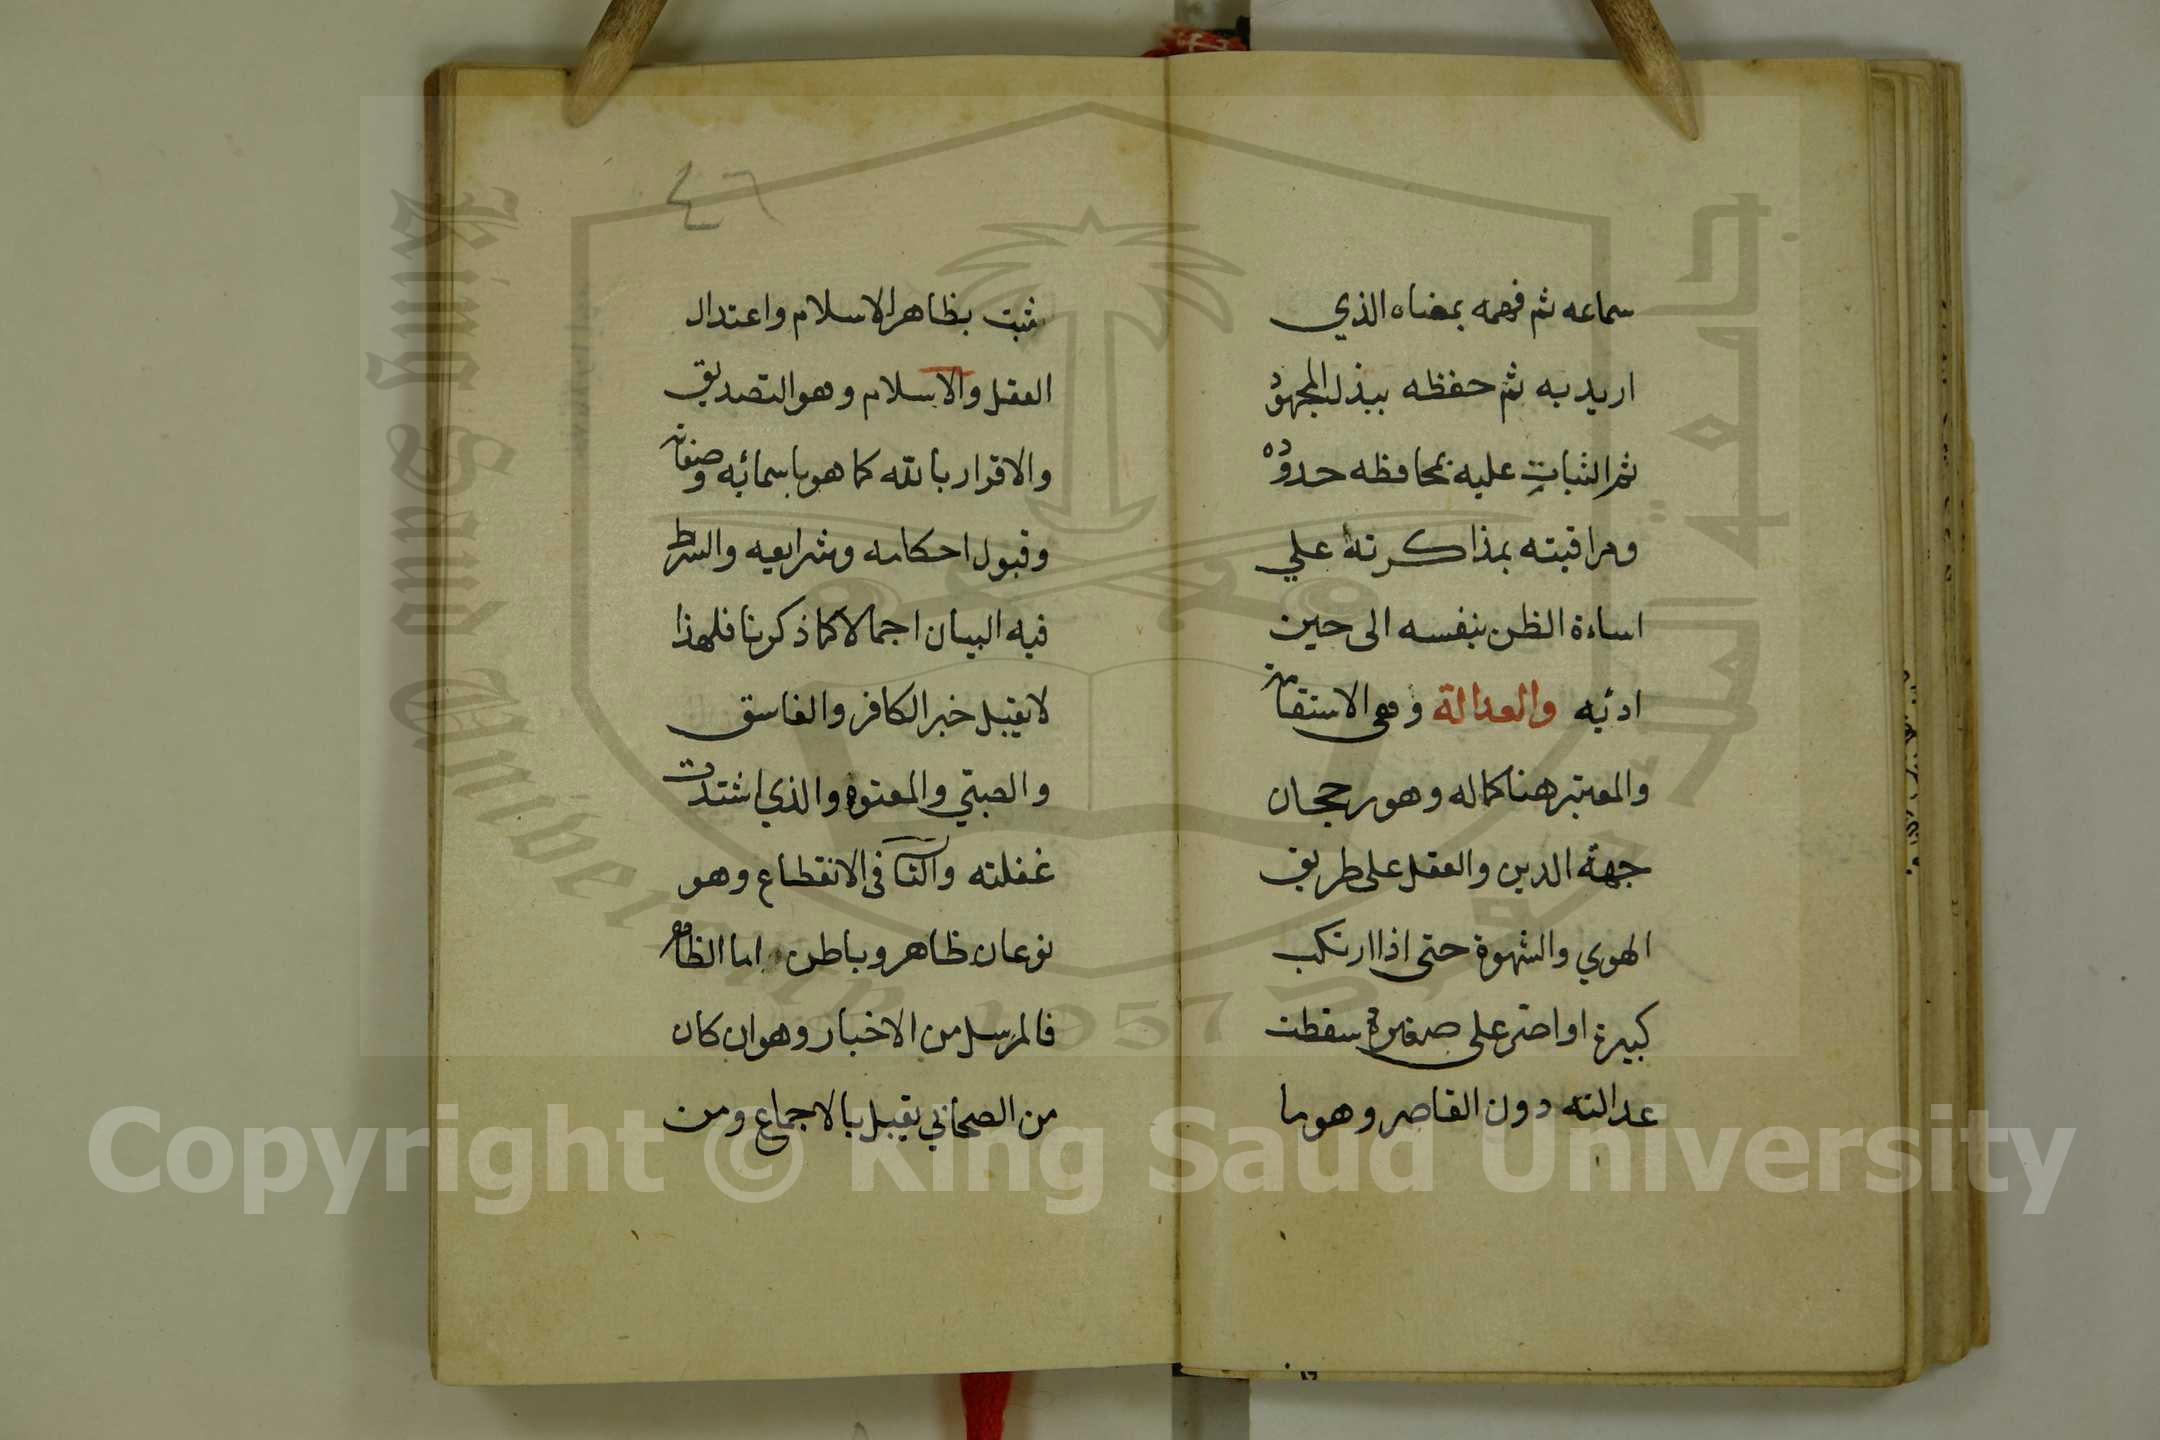 سماعه ثم فهمه بمعناه الذي
اريد به ثم حفظه ببذل المجهود
ثم الثبات عليه بمحافظه حدوده
ومراقبته بمذاكرته علي
اساءة الظن بنفسه الى حين
ادئه والعدالة وهى الاستقامة
والمعتبر هنا كماله وهو رجحان
جهة الدين والعقل على طريق
الهوي والشهوة حتى اذا ارتكب
كبيرة او اصر على صغيرة سقطت
عدالته دون القاصر وهو ما
٤٦
ثبت بظاهر الاسلام واعتدال
العقل والاسلام وهو التصديق
والاقرار بالله كما هو باسمائه وصفاته
وقبول احكامه وشرايعه والشرط
فيه البيان اجمالا كما ذكرنا فلهذا
لا يقبل خبر الكافر والفاسق
والصبي والمعتوه والذي اشتدت
غفلته والثانى فى الانقطاع وهو
نوعان ظاهر وباطن اما الظاهر
فالمرسل من الاخبار وهو ان كان
من الصحابي يقبل بالاجماع ومن
King Saud University
جامعة الملك سعود
1957
Copyright © King Saud University